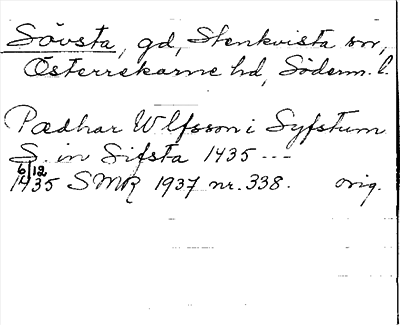 Sövsta, gd, Stenkvista sn,
Österrekarne hd, Söderm. l.
Pædhar Wlfsson i Syfstum
S. in Sifsta 1435 ---
6/12
1435 SMR 1937 nr. 338. orig.